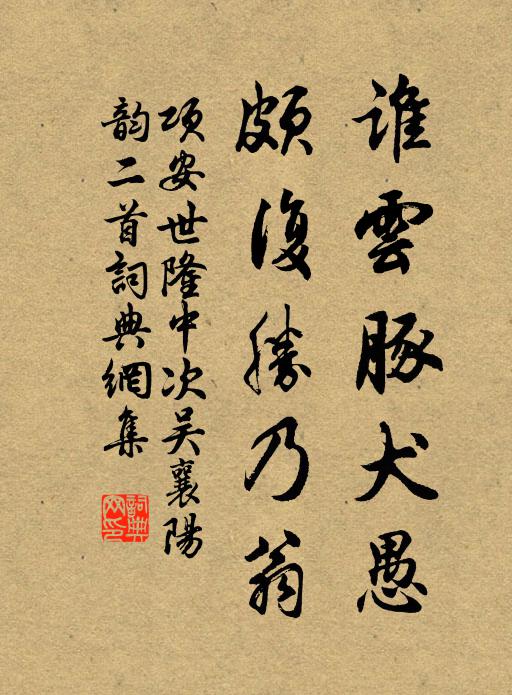 誰雲豚犬愚
頗復勝乃翁
項安世隆中次吴襄陽
韵二首詞典網集
詞典網印